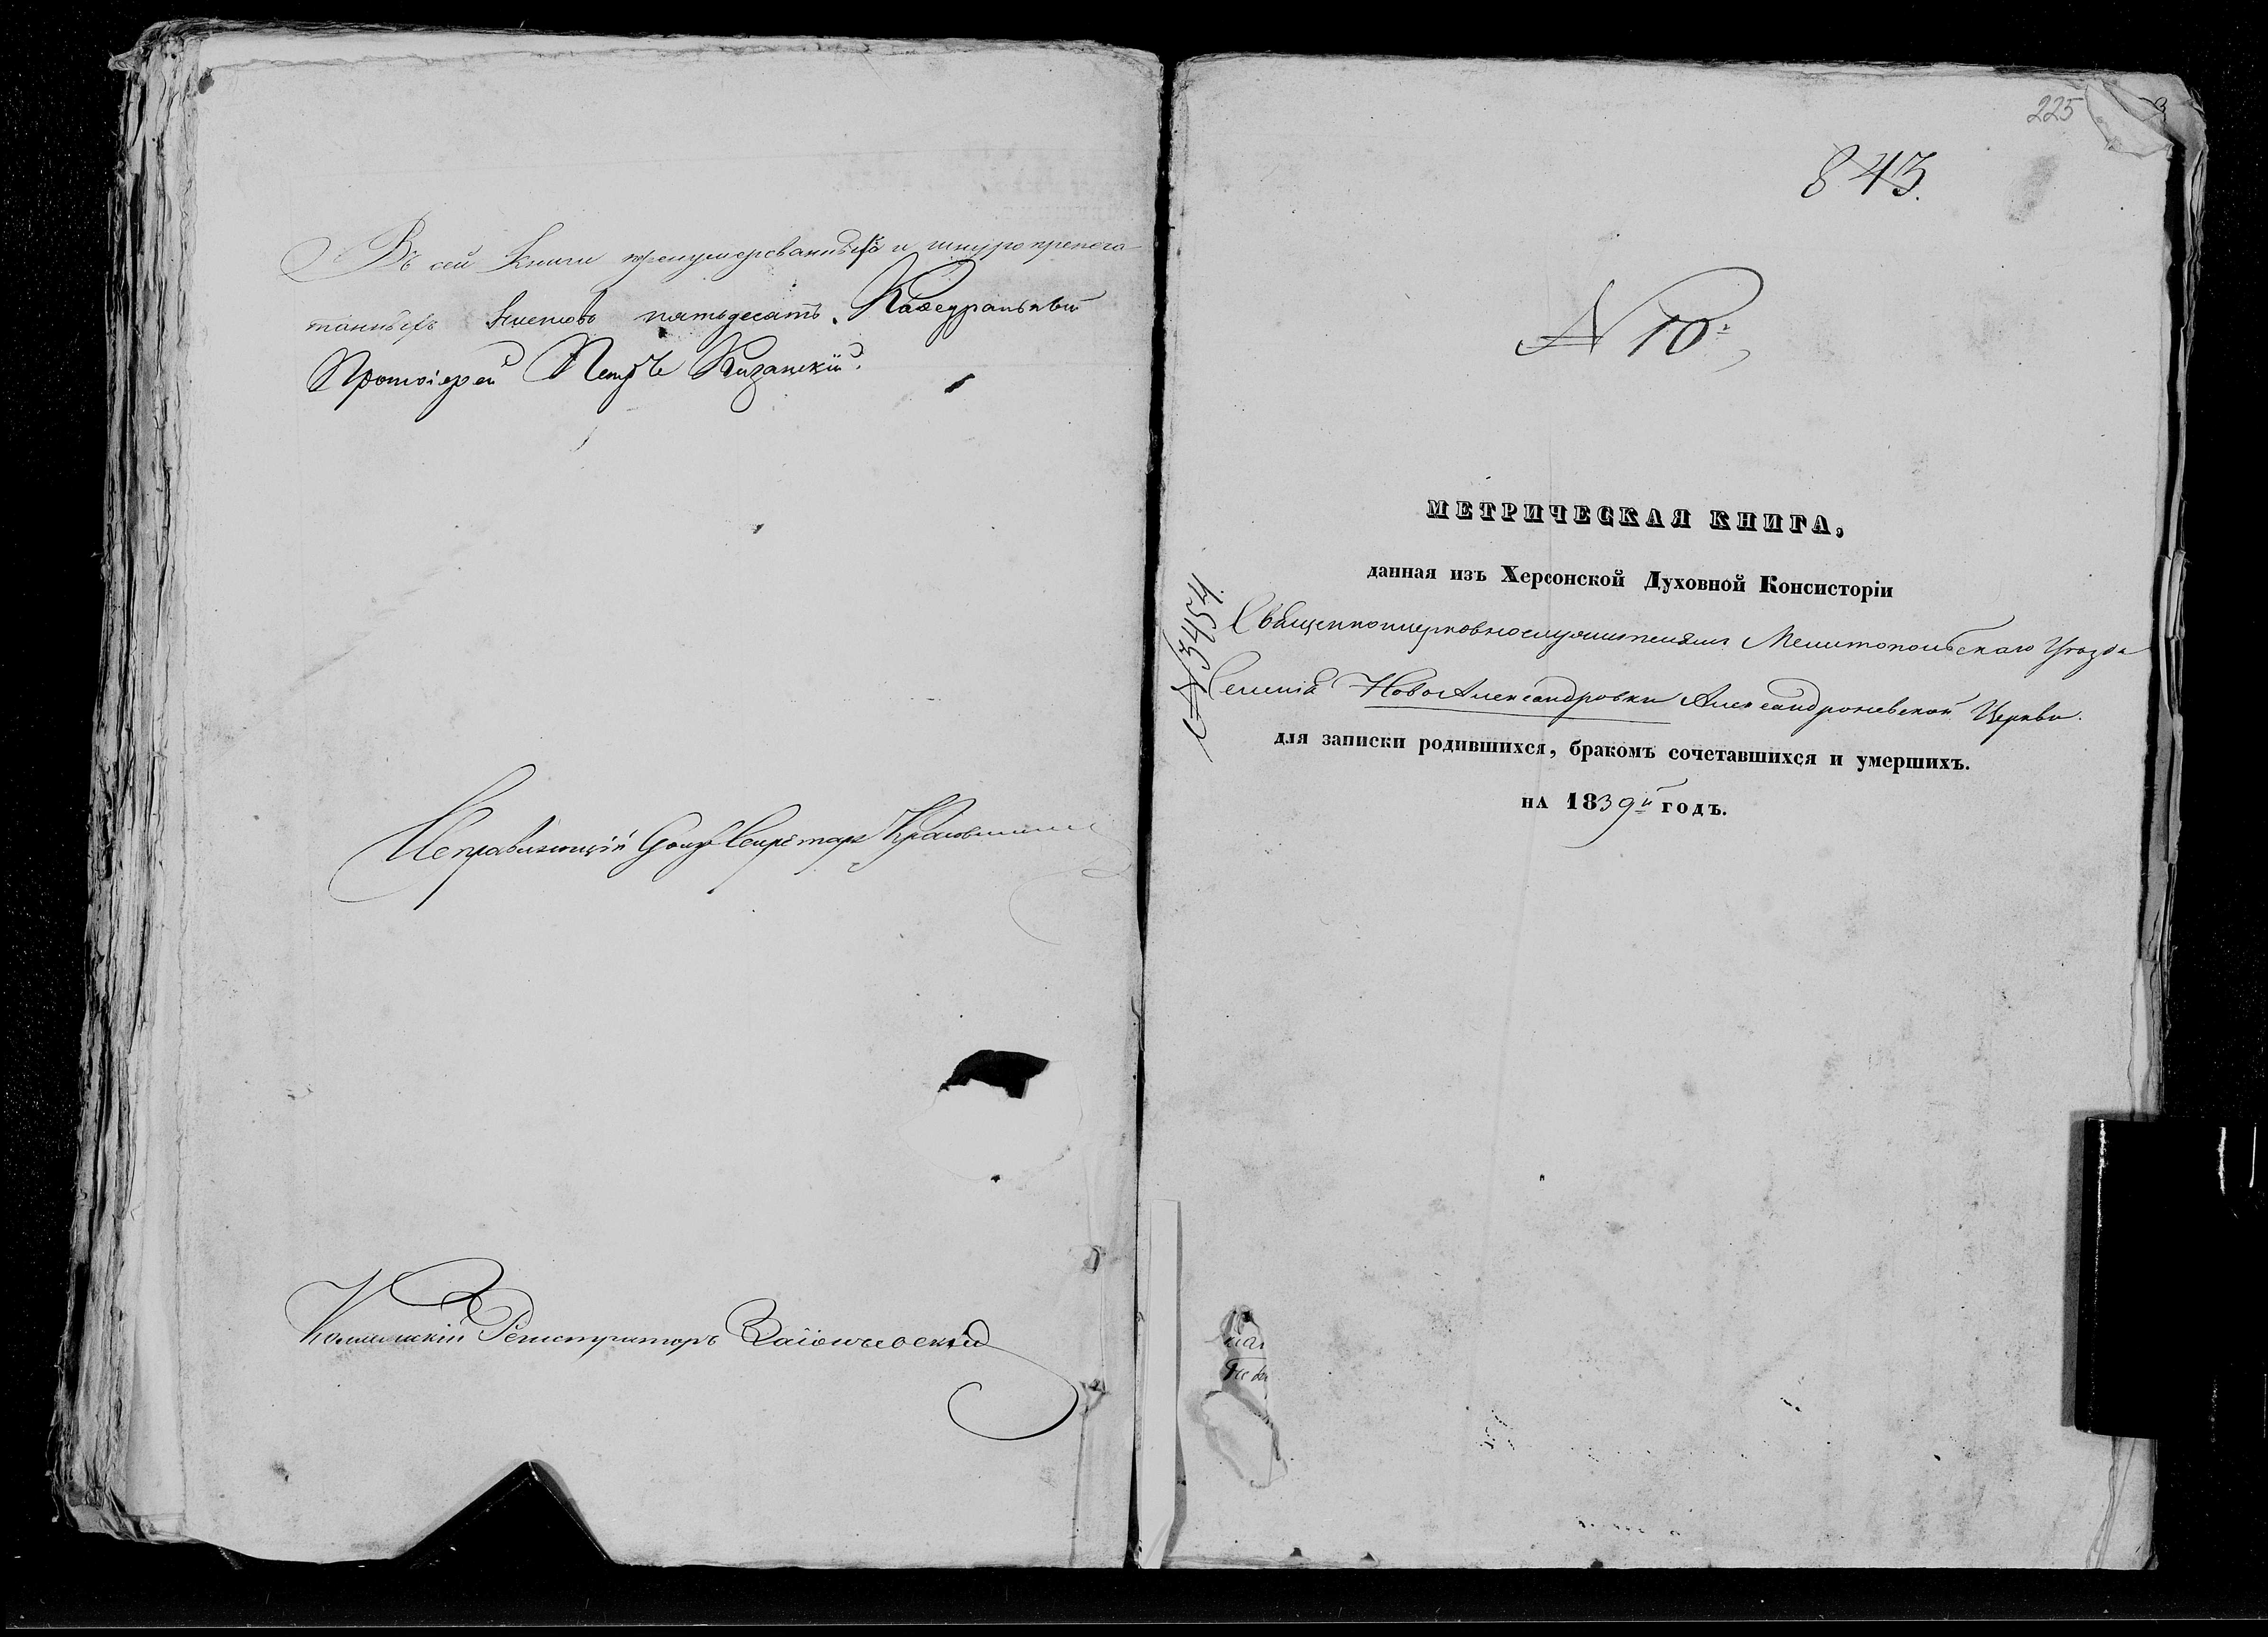 Въ сей Книги пренумерованныхъ и шнуро препеча-
танныхъ листовъ пятьдесятъ. Каѳедральный
Протоіерей Петръ
Исправляющій Секретарь
Коллежскій Регистраторъ
225
843.
N 10.
МЕТРИЧЕСКАЯ КНИГА,
данная изъ Херсонской Духовной Консисторіи
N 3454.
Священноцерковнослужителямъ Мелитопольскаго Уѣзда
Селенія НовоАлександровки Александроневской Церкви.
для записки родившихся, бракомъ сочетавшихся и умершихъ.
на 1839й годъ.